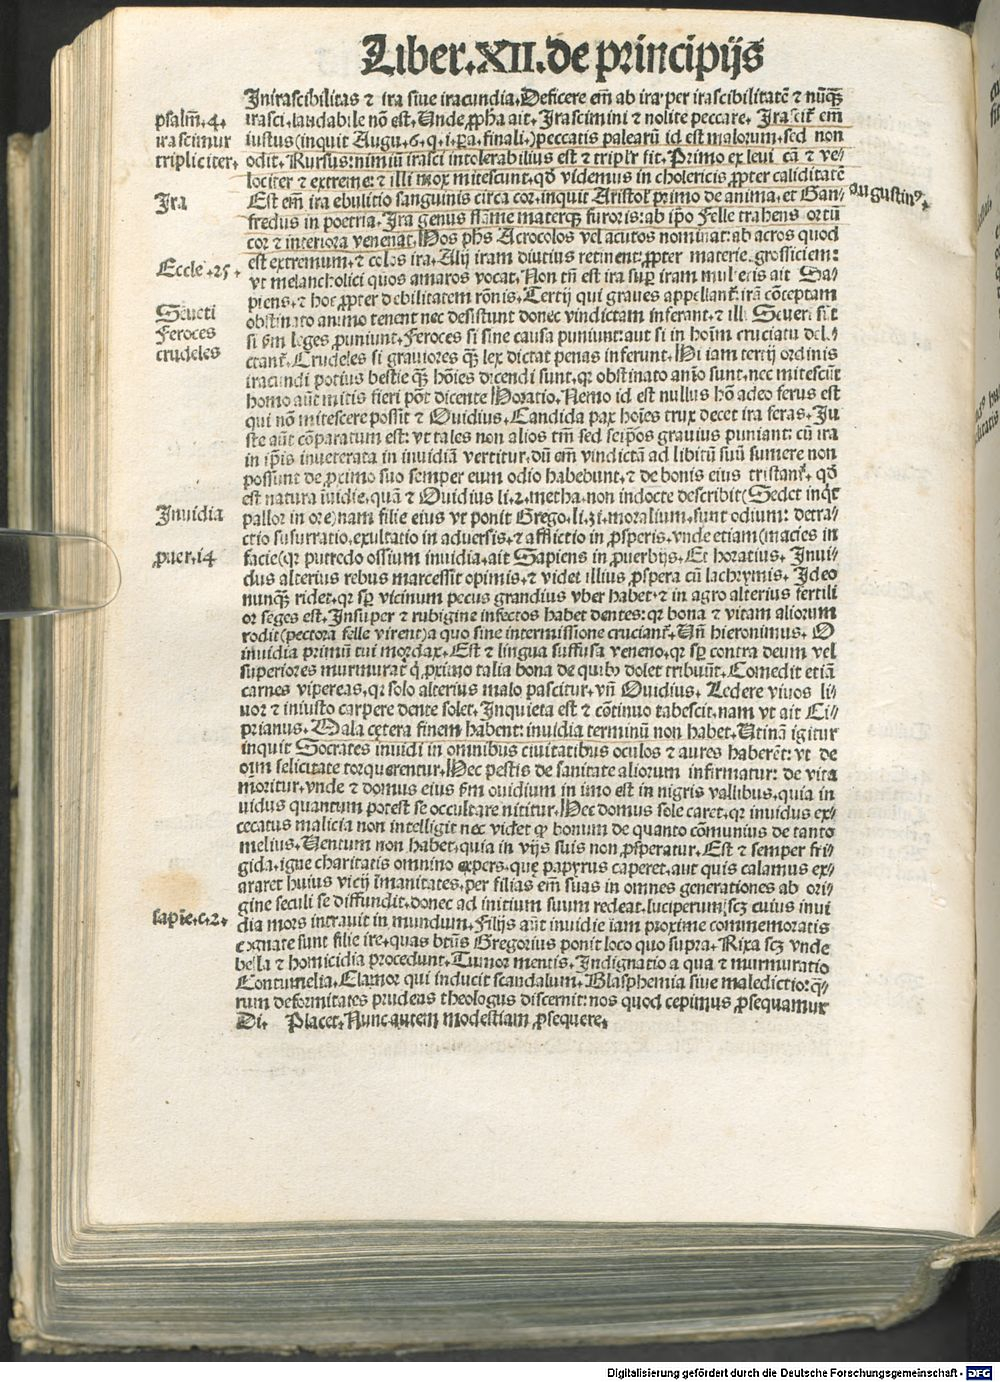 Liber.XII.de principijs
Inirascibilitas ⁊ ira siue iracundia.Deficere em̄ ab ira per irascibilitatē ⁊ nūq̄ꝫ
psalm̄.4.
irascimur
tripliciter.
irasci,laudabile nō est.Unde ꝓpha ait.Irascimini ⁊ nolite peccare.Irascit̄ em̄
iustus(inquit Augu.6.q.i.para.finali.)peccatis palearū id est malorum,sed non
odit.Rursus:nimiū irasci intolerabilius est ⁊ triplr̄ fit.Primo ex leui cā ⁊ ve⸗
lociter ⁊ extreme:⁊ illi mox mitescunt,qd̄ videmus in cholericis ꝓpter caliditatē
Ira
Augustinꝰ.
Est em̄ ira ebulitio sanguinis circa cor,inquit Aristot̄ primo de anima,et Gan⸗
fredus in poetria.Ira genus flāme materqꝫ furoris:ab ip̄o Felle trahens ortū
cor ⁊ interiora venenat.Hos ph̄s Acrocolos vel acutos nominat:ab acros quod
Eccle.25.
est extremum.⁊ colos ira.Alij iram diutius retinent:ꝓpter materie grossiciem:
vt melancholici quos amaros vocat.Non tn̄ est ira suꝑ iram mulieris ait Sa⸗
piens,⁊ hoc ꝓpter debilitatem rōnis.Tertij qui graues appellant̄:irā cōceptam
Seueti
Feroces
crudeles
obstinato animo tenent nec desistunt donec vindictam inferant.⁊ illi Seueri sūt
si s̄m leges ꝓniunt.Feroces si sine causa puniunt:aut si in hoīm cruciatu del⸗
ectant̄.Crudeles si grauiores q̄ꝫ lex dictat penas inferunt.Hi iam tertij ordinis
iracundi potius bestie q̄ꝫ hōies dicendi sunt,qꝛ obstinato anīo sunt,nec mitescūt
homo aūt mitis fieri pōt dicente Horatio.Nemo id est nullus hō adeo ferus est
qui nō mitescere possit ⁊ Ouidius.Candida pax hoīes trux decet ira feras.Ju
ste aūt cōparatum est:vt tales non alios tm̄ sed seip̄os grauius puniant:cū ira
in ip̄is inueterata in inuidiā vertitur,dū em̄ vindictā ad libitū suū sumere non
possunt de ꝓximo suo semper eum odio habebunt,⁊ de bonis eius tristant̄.qd̄
est natura īuidie,quā ⁊ Ouidius li.2.metha.non indocte describit(Sedet inq̄t
Inuidia
pallor in ore)nam filie eius vt ponit Grego.li.31.moralium,sunt odium:detra⸗
ctio susurratio,exultatio in aduersis,⁊ afflictio in ꝓsperis.vnde etiam(macies in
ꝓuer.14
facie(qꝛ putredo ossium inuidia,ait Sapiens in ꝓuerbijs.Et horatius.Inui⸗
dus alterius rebus marcessit opimis,⁊ videt illius ꝓspera cū lachrymis.Ideo
nunqꝫ ridet,qꝛ sꝑ vicinum pecus grandius vber habet,⁊ in agro alterius fertili
or seges est.Insuper ⁊ rubigine infectos habet dentes:qꝛ bona ⁊ vitam aliorum
rodit(pectora felle virent)a quo sine intermissione cruciant̄.Vn̄ hieronimus.O
inuidia primū tui mordax.Est ⁊ lingua suffusa veneno,qꝛ sꝑ contra deum vel
superiores murmurat ꝙ ꝓximo talia bona de quibꝰ dolet tribuūt.Comedit etiā
carnes vipereas,qꝛ solo alterius malo pascitur,vn̄ Ouidius.Ledere viuos li⸗
uor ⁊ iniusto carpere dente solet.Inquieta est ⁊ cōtinuo tabescit,nam vt ait Ci⸗
prianus.Mala cętera finem habent:inuidia terminū non habet.Utinā igitur
inquit Socrates inuidi in omnibus ciuitatibus oculos ⁊ aures haberēt:vt de
oīm felicitate torquerentur.Hec pestis de sanitate aliorum infirmatur:de vita
moritur,vnde ⁊ domus eius s̄m ouidium in imo est in nigris vallibus,quia in
uidus quantum potest se occultare nititur.Hec domus sole caret,qꝛ inuidus ex⸗
cecatus malicia non intelligit nec videt ꝙ bonum de quanto cōmunius de tanto
melius.Uentum non habet,quia in vijs suis non ꝓsperatur.Est ⁊ semper fri⸗
gida,igne charitatis omnino expers,quę papyrus caperet,aut quis calamus ex⸗
araret huius vicij īmanitates,per filias em̄ suas in omnes generationes ab ori⸗
gine seculi se diffundit,donec ad initium suum redeat,luciperum,scꝫ cuius inui
sapīe.c.2.
dia mors intrauit in mundum.Filijs aūt inuidie iam proxime commemoratis
cognate sunt filie ire,quas btūs Gregorius ponit loco quo supra.Rixa scꝫ vnde
bella ⁊ homicidia procedunt.Tumor mentis.Indignatio a qua ⁊ murmuratio
Contumelia,Clamor qui inducit scandalum.Blasphemia siue maledictio:qua⸗
rum deformitates prudens theologus discernit:nos quod cepimus ꝓsequamur
Di. Placet.Nunc autem modestiam ꝓsequere.
Digitalisierung gefördert durch die Deutsche Forschungsgemeinschaft - DFG